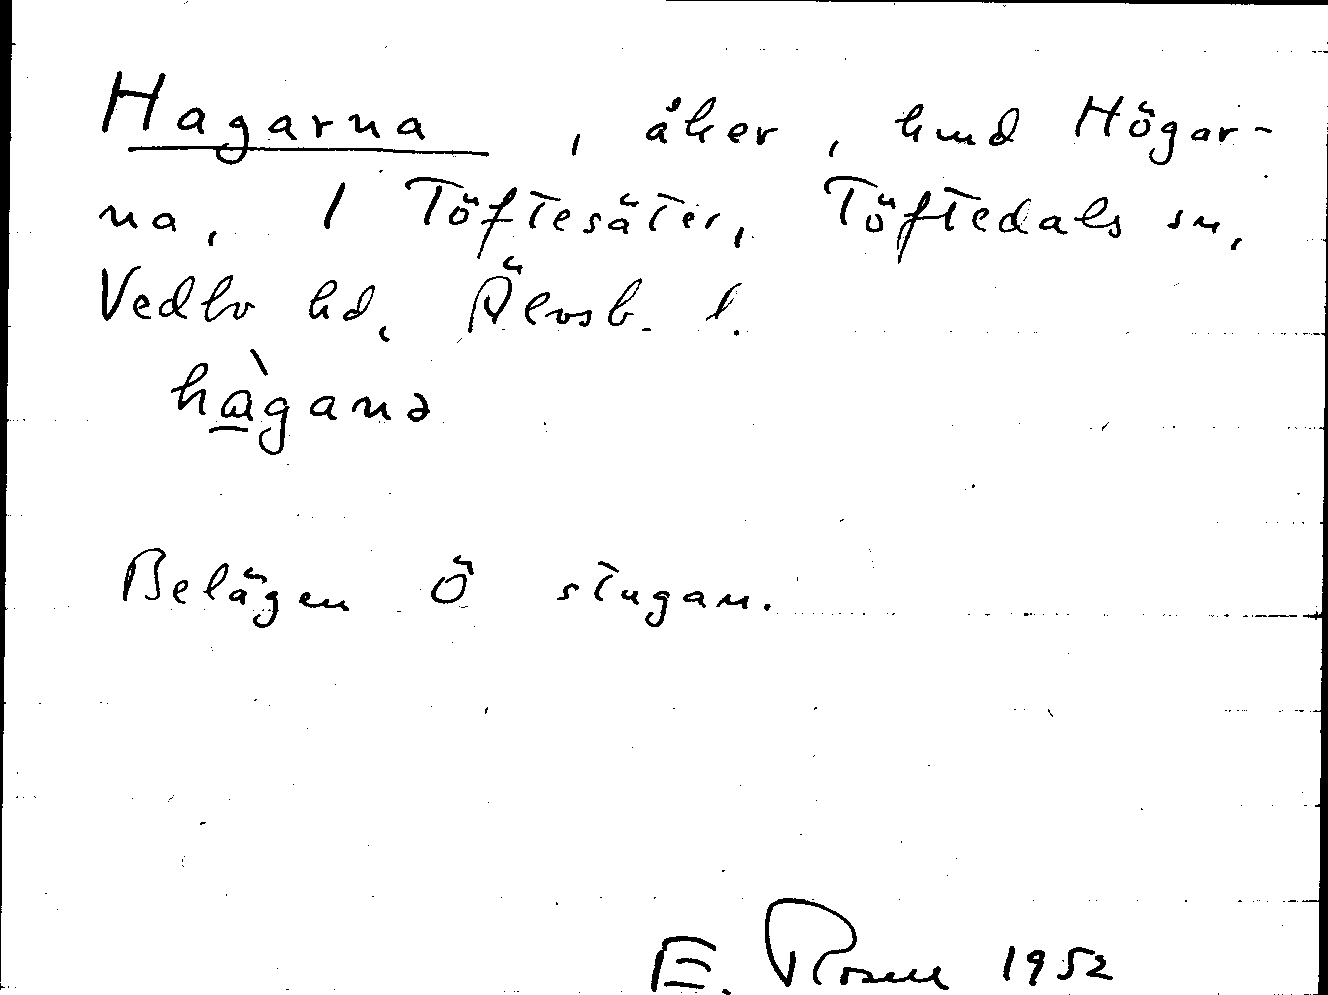 Hagarna, åker, hmd Högar-
na, 1 Töftesäter, Töftedals sn,
Vedbo hd, Älvsb. l.
hàganə
Belägen Ö stugan.
E. Rosen 1952